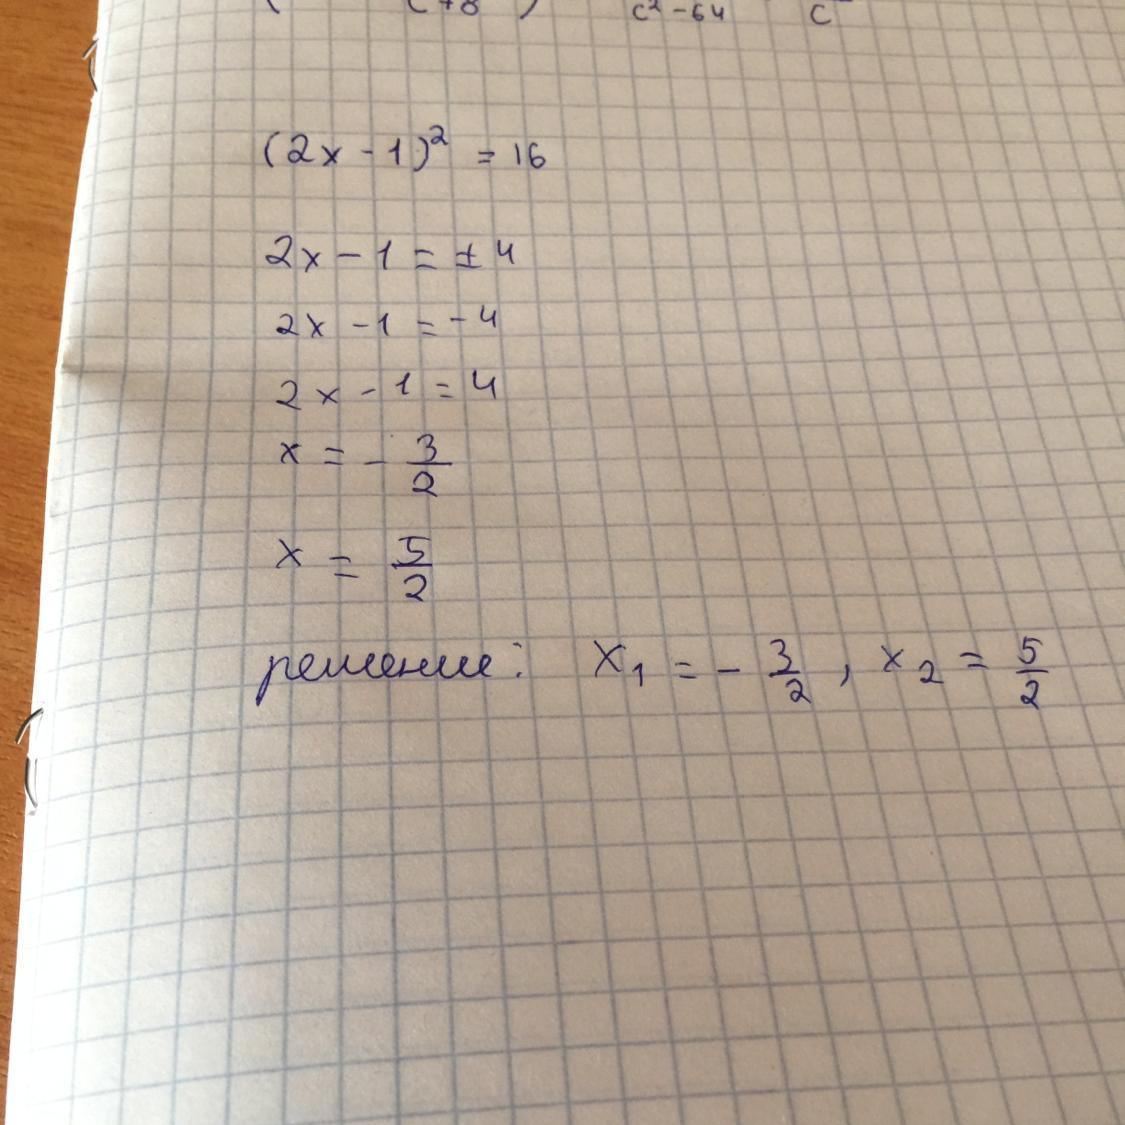 c + 8 ) c² - 64 c
(2x - 1)² = 16
2x - 1 = ± 4
2x - 1 = - 4
2x - 1 = 4
x = - 3/2
x = 5/2
решение: x₁ = - 3/2 , x₂ = 5/2